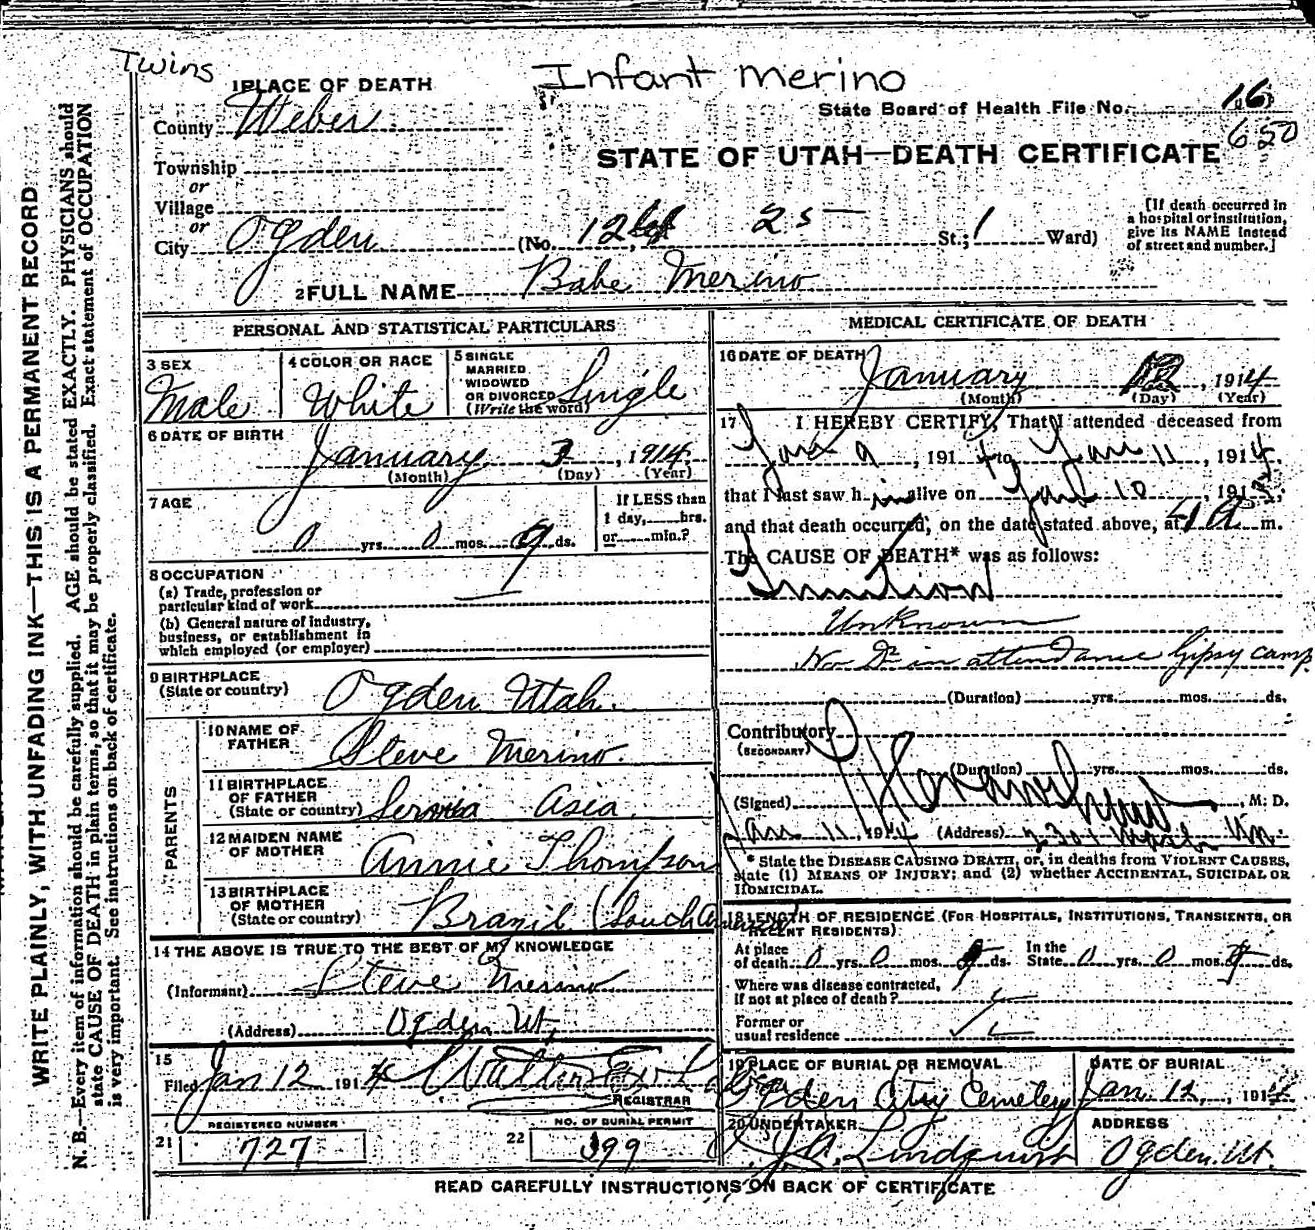 Twins
Infant Merino
1 PLACE OF DEATH
State Board of Health File No. 16
650
County Weber
STATE OF UTAH—DEATH CERTIFICATE
Township
or
Village
or
City Ogden (No. 25 St.; 1 Ward)
[If death occurred in a hospital or institution, give its NAME instead of street and number.]
2 FULL NAME Babe Merino
PERSONAL AND STATISTICAL PARTICULARS
3 SEX
Male
4 COLOR OR RACE
White
5 SINGLE
MARRIED
WIDOWED
OR DIVORCED
(Write the word)
Single
6 DATE OF BIRTH
January 3, 1914
(Month) (Day) (Year)
7 AGE
0 yrs. 0 mos. 9 ds.
If LESS than
1 day, hrs.
or min.?
8 OCCUPATION
(a) Trade, profession or
particular kind of work
(b) General nature of industry,
business, or establishment in
which employed (or employer)
9 BIRTHPLACE
(State or country)
Ogden Utah.
PARENTS
10 NAME OF
FATHER
Steve Merino.
11 BIRTHPLACE
OF FATHER
(State or country)
Asia
12 MAIDEN NAME
OF MOTHER
Annie Thompson
13 BIRTHPLACE
OF MOTHER
(State or country)
Brazil (South America)
14 THE ABOVE IS TRUE TO THE BEST OF MY KNOWLEDGE
(Informant) Steve Merino
(Address) Ogden Ut,
15
Filed Jan 12 1914 Walter
REGISTRAR
REGISTERED NUMBER
21 727
NO. OF BURIAL PERMIT
22 399
MEDICAL CERTIFICATE OF DEATH
16 DATE OF DEATH
January 12, 1914
(Month) (Day) (Year)
17 I HEREBY CERTIFY, That I attended deceased from
Jan 9, 1914 to Jan 11, 1914.
that I last saw h im alive on Jan 10, 191
and that death occurred, on the date stated above, at 4 A m.
The CAUSE OF DEATH* was as follows:
Inanition
Unknown
No Dr in attendance Gipsy camp.
(Duration) yrs. mos. ds.
Contributory
(SECONDARY)
(Duration) yrs. mos. ds.
(Signed) , M. D.
Jan 11 1914 (Address) Wash
* State the DISEASE CAUSING DEATH, or, in deaths from VIOLENT CAUSES,
state (1) MEANS OF INJURY; and (2) whether ACCIDENTAL, SUICIDAL OR
HOMICIDAL.
18 LENGTH OF RESIDENCE (FOR HOSPITALS, INSTITUTIONS, TRANSIENTS, OR
RECENT RESIDENTS)
At place
of death 0 yrs. 0 mos. 9 ds. In the
State 0 yrs. 0 mos. 9 ds.
Where was disease contracted,
if not at place of death?
Former or
usual residence
19 PLACE OF BURIAL OR REMOVAL
Ogden City Cemetery
DATE OF BURIAL
Jan. 12, 1914
20 UNDERTAKER
J A. Lindquist
ADDRESS
Ogden. Ut.
READ CAREFULLY INSTRUCTIONS ON BACK OF CERTIFICATE
WRITE PLAINLY, WITH UNFADING INK—THIS IS A PERMANENT RECORD
N. B.—Every item of information should be carefully supplied. AGE should be stated EXACTLY. PHYSICIANS should
state CAUSE OF DEATH in plain terms, so that it may be properly classified. Exact statement of OCCUPATION
is very important. See instructions on back of certificate.